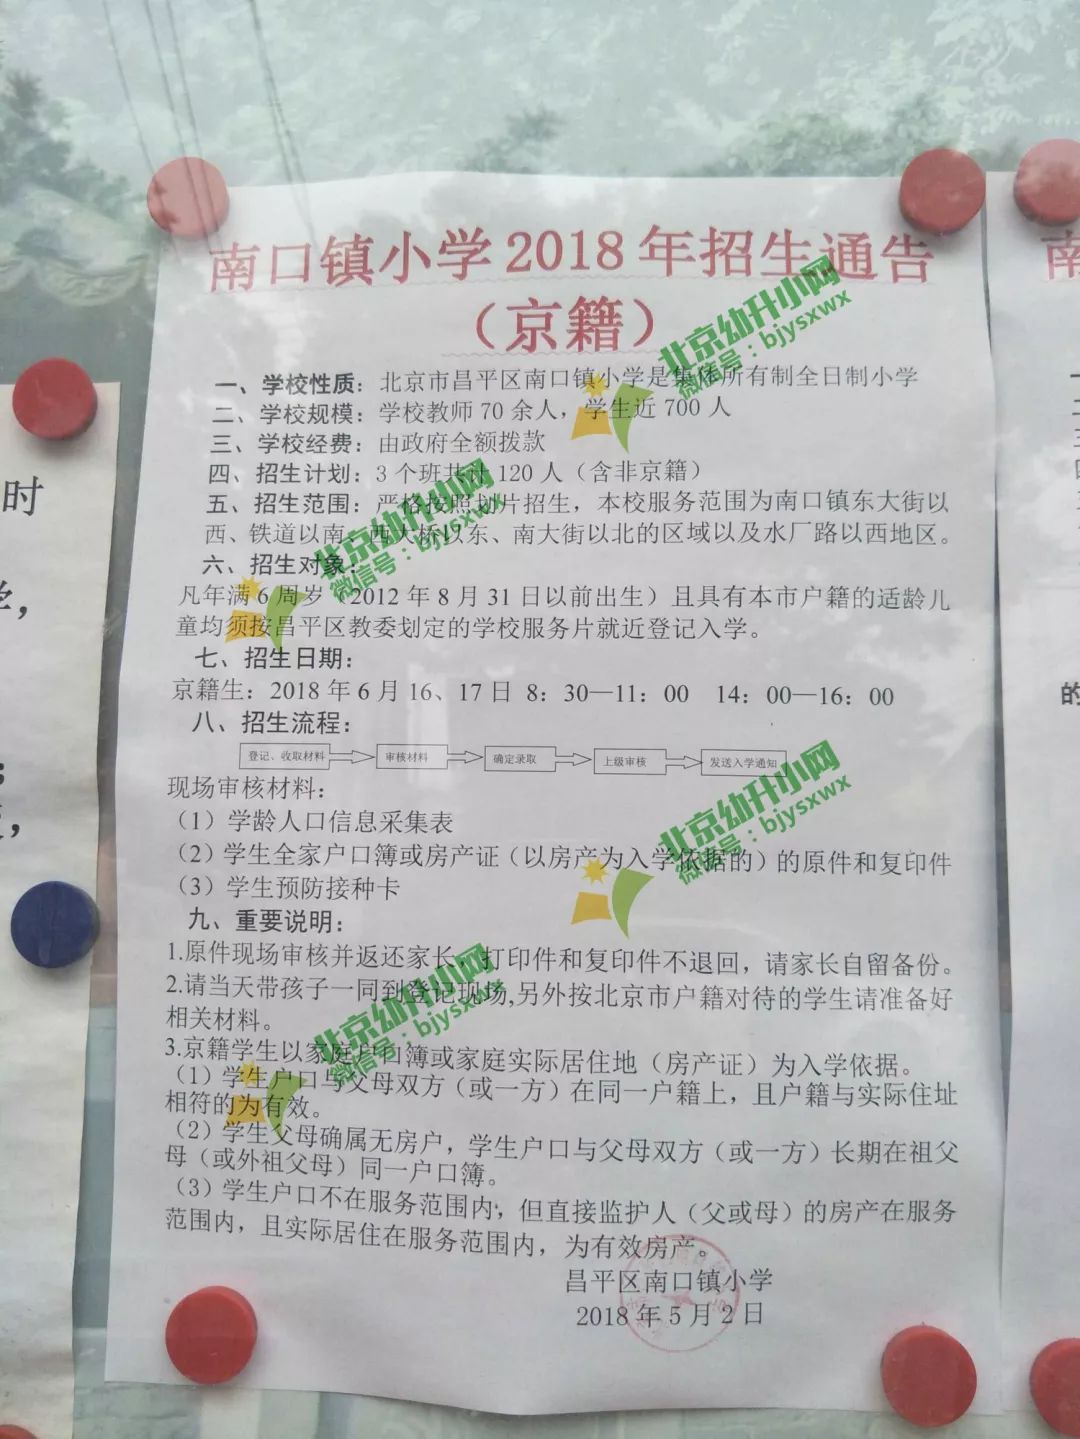 南口镇小学2018年招生通告
（京籍）
一、学校性质：北京市昌平区南口镇小学是集体所有制全日制小学
二、学校规模：学校教师70余人，学生近700人
三、学校经费：由政府全额拨款
四、招生计划：3个班共计120人（含非京籍）
五、招生范围：严格按照划片招生，本校服务范围为南口镇东大街以
西、铁道以南、西大桥以东、南大街以北的区域以及水厂路以西地区。
六、招生对象：
凡年满6周岁（2012年8月31日以前出生）且具有本市户籍的适龄儿
童均须按昌平区教委划定的学校服务片就近登记入学。
七、招生日期：
京籍生：2018年6月16、17日 8：30—11：00 14：00—16：00
八、招生流程：
登记、收取材料 审核材料 确定录取 上级审核 发送入学通知
现场审核材料：
（1）学龄人口信息采集表
（2）学生全家户口簿或房产证（以房产为入学依据的）的原件和复印件
（3）学生预防接种卡
九、重要说明：
1.原件现场审核并返还家长，打印件和复印件不退回，请家长自留备份。
2.请当天带孩子一同到登记现场,另外按北京市户籍对待的学生请准备好
相关材料。
3.京籍学生以家庭户口簿或家庭实际居住地（房产证）为入学依据。
（1）学生户口与父母双方（或一方）在同一户籍上，且户籍与实际住址
相符的为有效。
（2）学生父母确属无房户，学生户口与父母双方（或一方）长期在祖父
母（或外祖父母）同一户口簿。
（3）学生户口不在服务范围内，但直接监护人（父或母）的房产在服务
范围内，且实际居住在服务范围内，为有效房产。
昌平区南口镇小学
2018年5月2日
北京幼升小网
微信号：bjysxwx
北京幼升小网
微信号：bjysxwx
北京幼升小网
微信号：bjysxwx
北京幼升小网
微信号：bjysxwx
时
学，
南
的